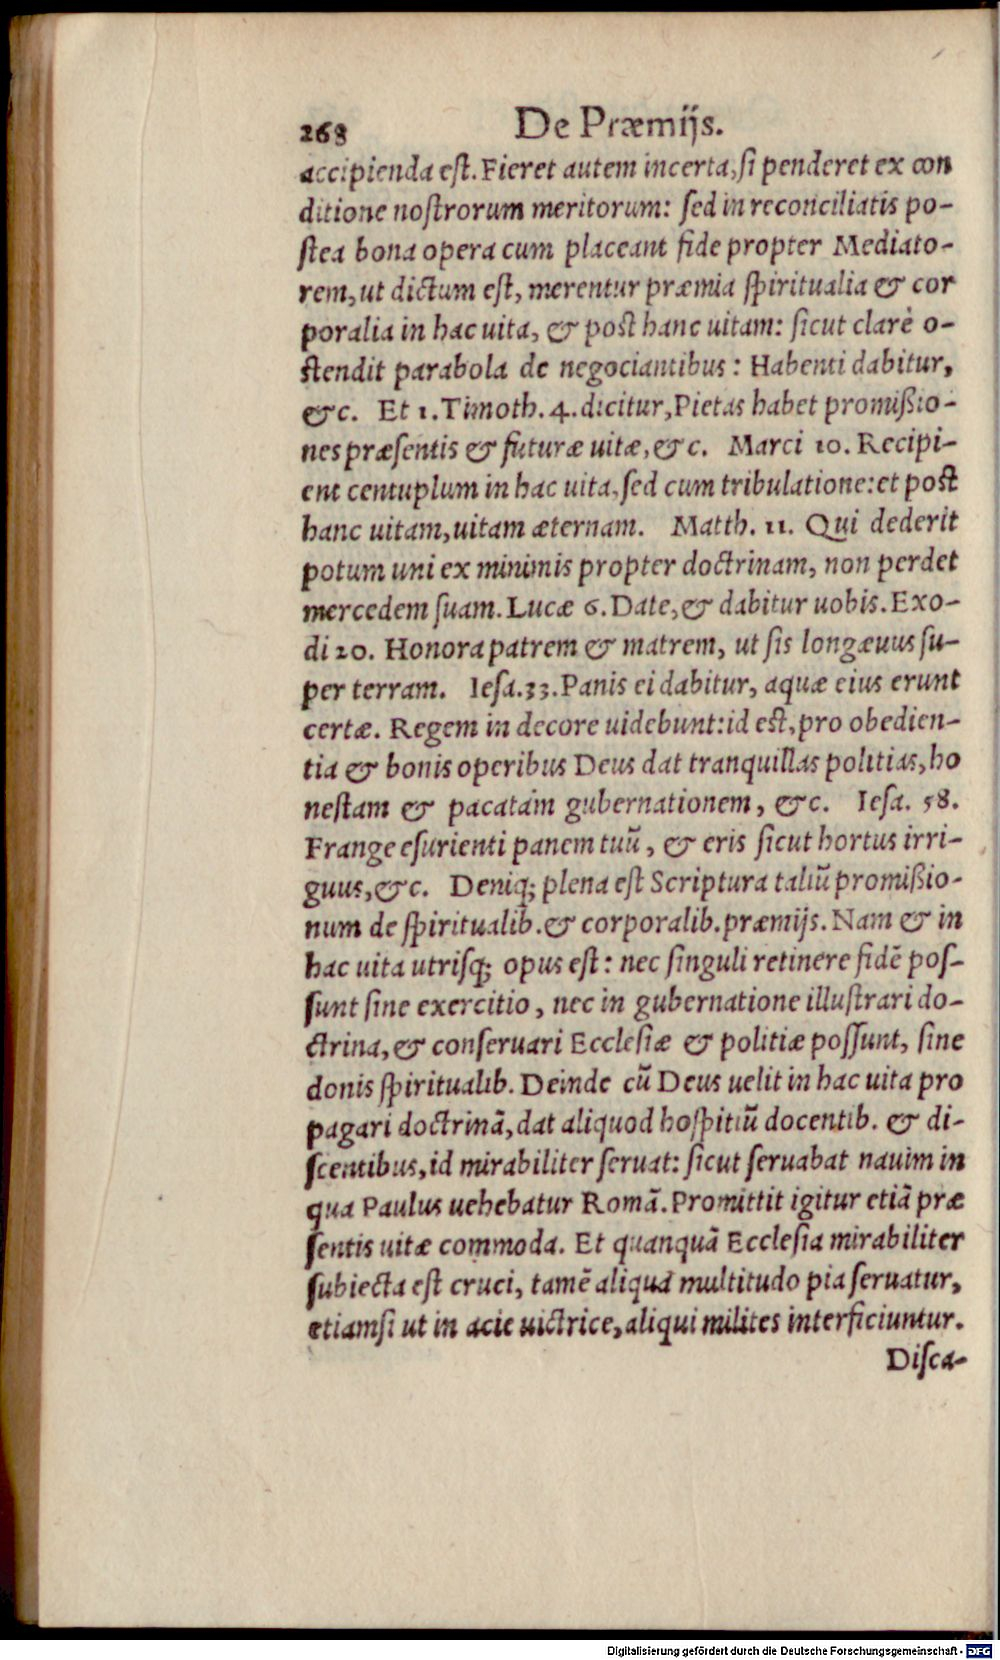 268 De Præmijs.
accipienda est. Fieret autem incerta, si penderet ex con
ditione nostrorum meritorum: sed in reconciliatis po-
stea bona opera cum placeant fide propter Mediato-
rem, ut dictum est, merentur præmia spiritualia & cor
poralia in hac uita, & post hanc uitam: sicut clarè o-
stendit parabola de negociantibus: Habenti dabitur,
&c. Et 1. Timoth. 4. dicitur, Pietas habet promißio-
nes præsentis & futuræ uitæ, &c. Marci 10. Recipi-
ent centuplum in hac uita, sed cum tribulatione: et post
hanc uitam, uitam æternam. Matth. 11. Qui dederit
potum uni ex minimis propter doctrinam, non perdet
mercedem suam. Lucæ 6. Date, & dabitur uobis. Exo-
di 20. Honora patrem & matrem, ut sis longæuus su-
per terram. Iesa. 33. Panis ei dabitur, aquæ eius erunt
certæ. Regem in decore uidebunt: id est, pro obedien-
tia & bonis operibus Deus dat tranquillas politias, ho
nestam & pacatam gubernationem, &c. Iesa. 58.
Frange esurienti panem tuū, & eris sicut hortus irri-
guus, &c. Deniq; plena est Scriptura taliū promißio-
num de spiritualib. & corporalib. præmijs. Nam & in
hac uita utrisq; opus est: nec singuli retinere fidē pos-
sunt sine exercitio, nec in gubernatione illustrari do-
ctrina, & conseruari Ecclesiæ & politiæ possunt, sine
donis spiritualib. Deinde cū Deus uelit in hac uita pro
pagari doctrinā, dat aliquod hospitiū docentib. & di-
scentibus, id mirabiliter seruat: sicut seruabat nauim in
qua Paulus uehebatur Romā. Promittit igitur etiā præ
sentis uitæ commoda. Et quanquā Ecclesia mirabiliter
subiecta est cruci, tamē aliqua multitudo pia seruatur,
etiamsi ut in acie uictrice, aliqui milites interficiuntur.
Disca-
Digitalisierung gefördert durch die Deutsche Forschungsgemeinschaft - DFG